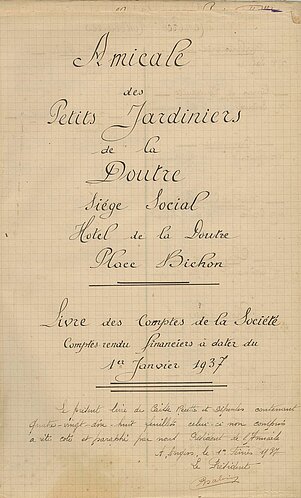 Amicale
des
Petits Jardiniers
de la
Doutre
Siége Social
Hotel de la Doutre
Place Bichon
Livre des Comptes de la Société
Comptes rendu financiers à dater du
1er Janvier 1937
Le présent livre de Caisse Recettes et Dépenses contenant
quatre-vingt-dix-huit feuillets celui-ci non compris
a été coté et paraphé par nous Président de l'Amicale
A Angers, le 1er Février 1937
Le Président